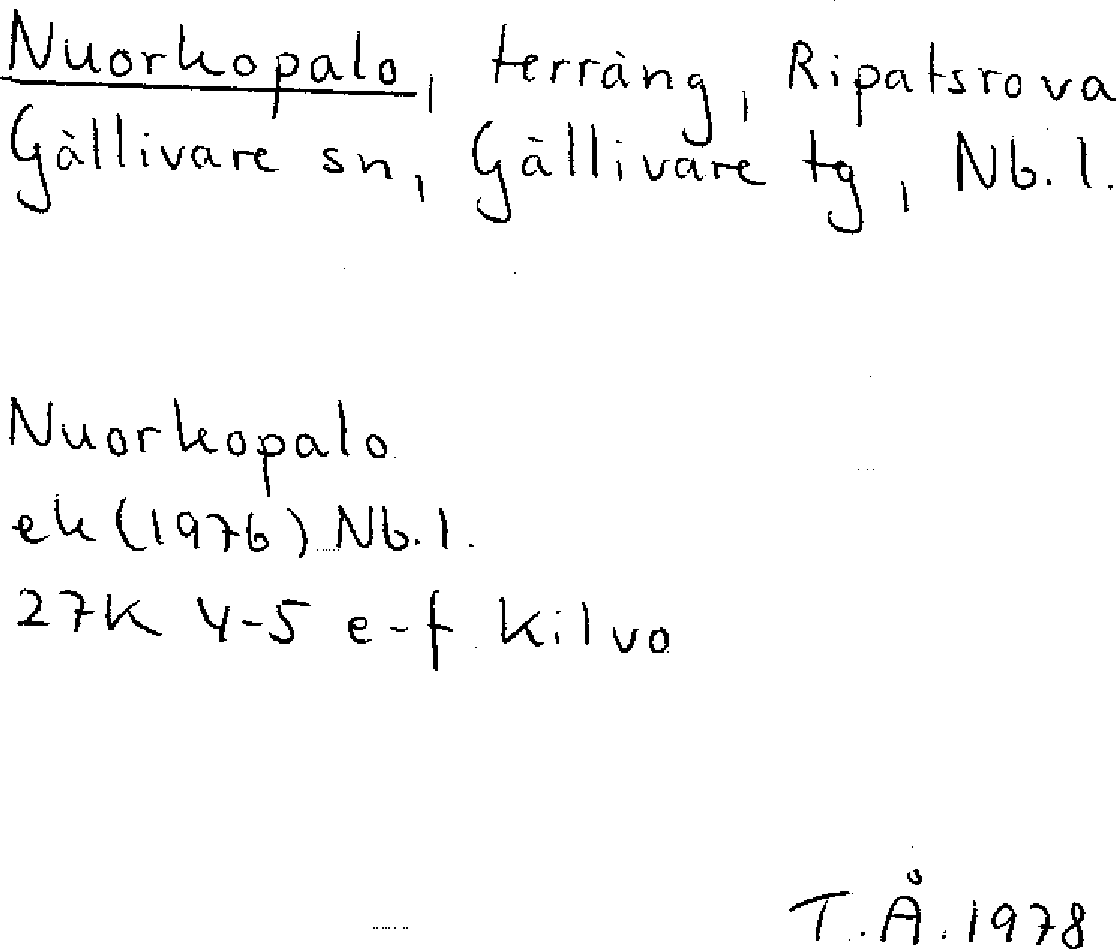 Nuorkopalo, terräng, Ripatsrova
Gällivare sn, Gällivare tg, Nb. l.
Nuorkopalo
ek (1976) Nb. l.
27K 4-5 e-f Kilvo
T.Å. 1978